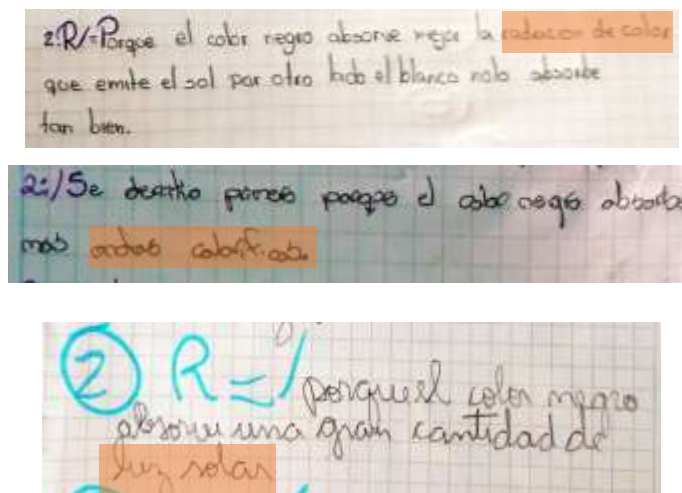 2.R/-Porque el color negro absorve mejor la radacion de calor
que emite el sol por otro lado el blanco nolo absorbe
tan bien.
2:/Se derritio porque el color negro absorbe
mas ondas calorificas.
2 R=/porque el color negro
absorve una gran cantidad de
luz solar